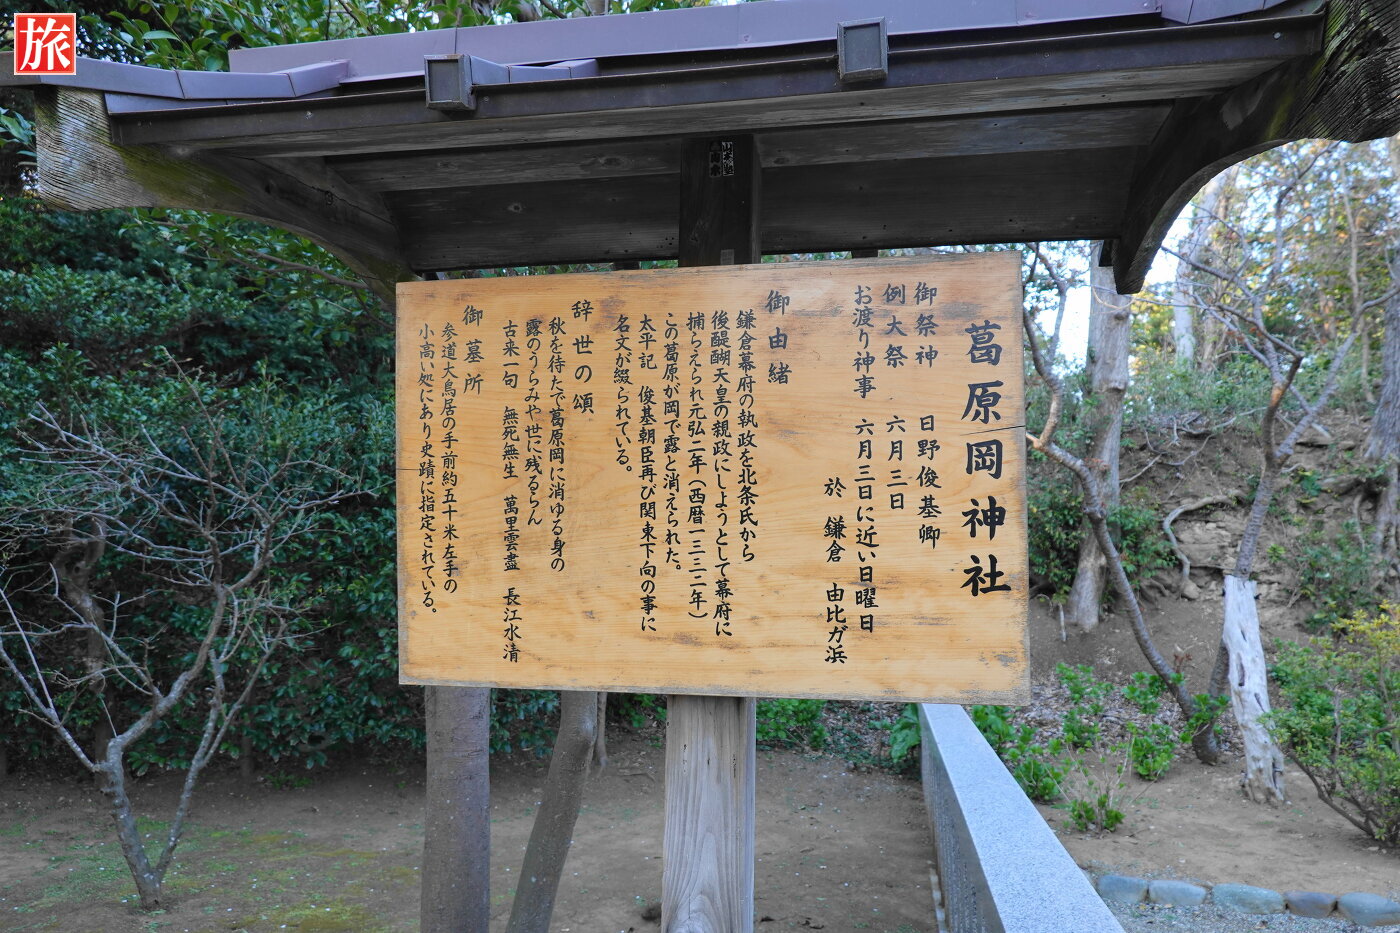 旅
葛原岡神社
御祭神　日野俊基卿
例大祭　六月三日
お渡り神事　六月三日に近い日曜日
於　鎌倉　由比ガ浜
御由緒
鎌倉幕府の執政を北条氏から
後醍醐天皇の親政にしようとして幕府に
捕らえられ元弘二年（西暦一三三二年）
この葛原が岡で露と消えられた。
太平記　俊基朝臣再び関東下向の事に
名文が綴られている。
辞世の頌
秋を待たで葛原岡に消ゆる身の
露のうらみや世に残るらん
古来一句　無死無生　萬里雲盡　長江水清
御墓所
参道大鳥居の手前約五十米左手の
小高い処にあり史蹟に指定されている。